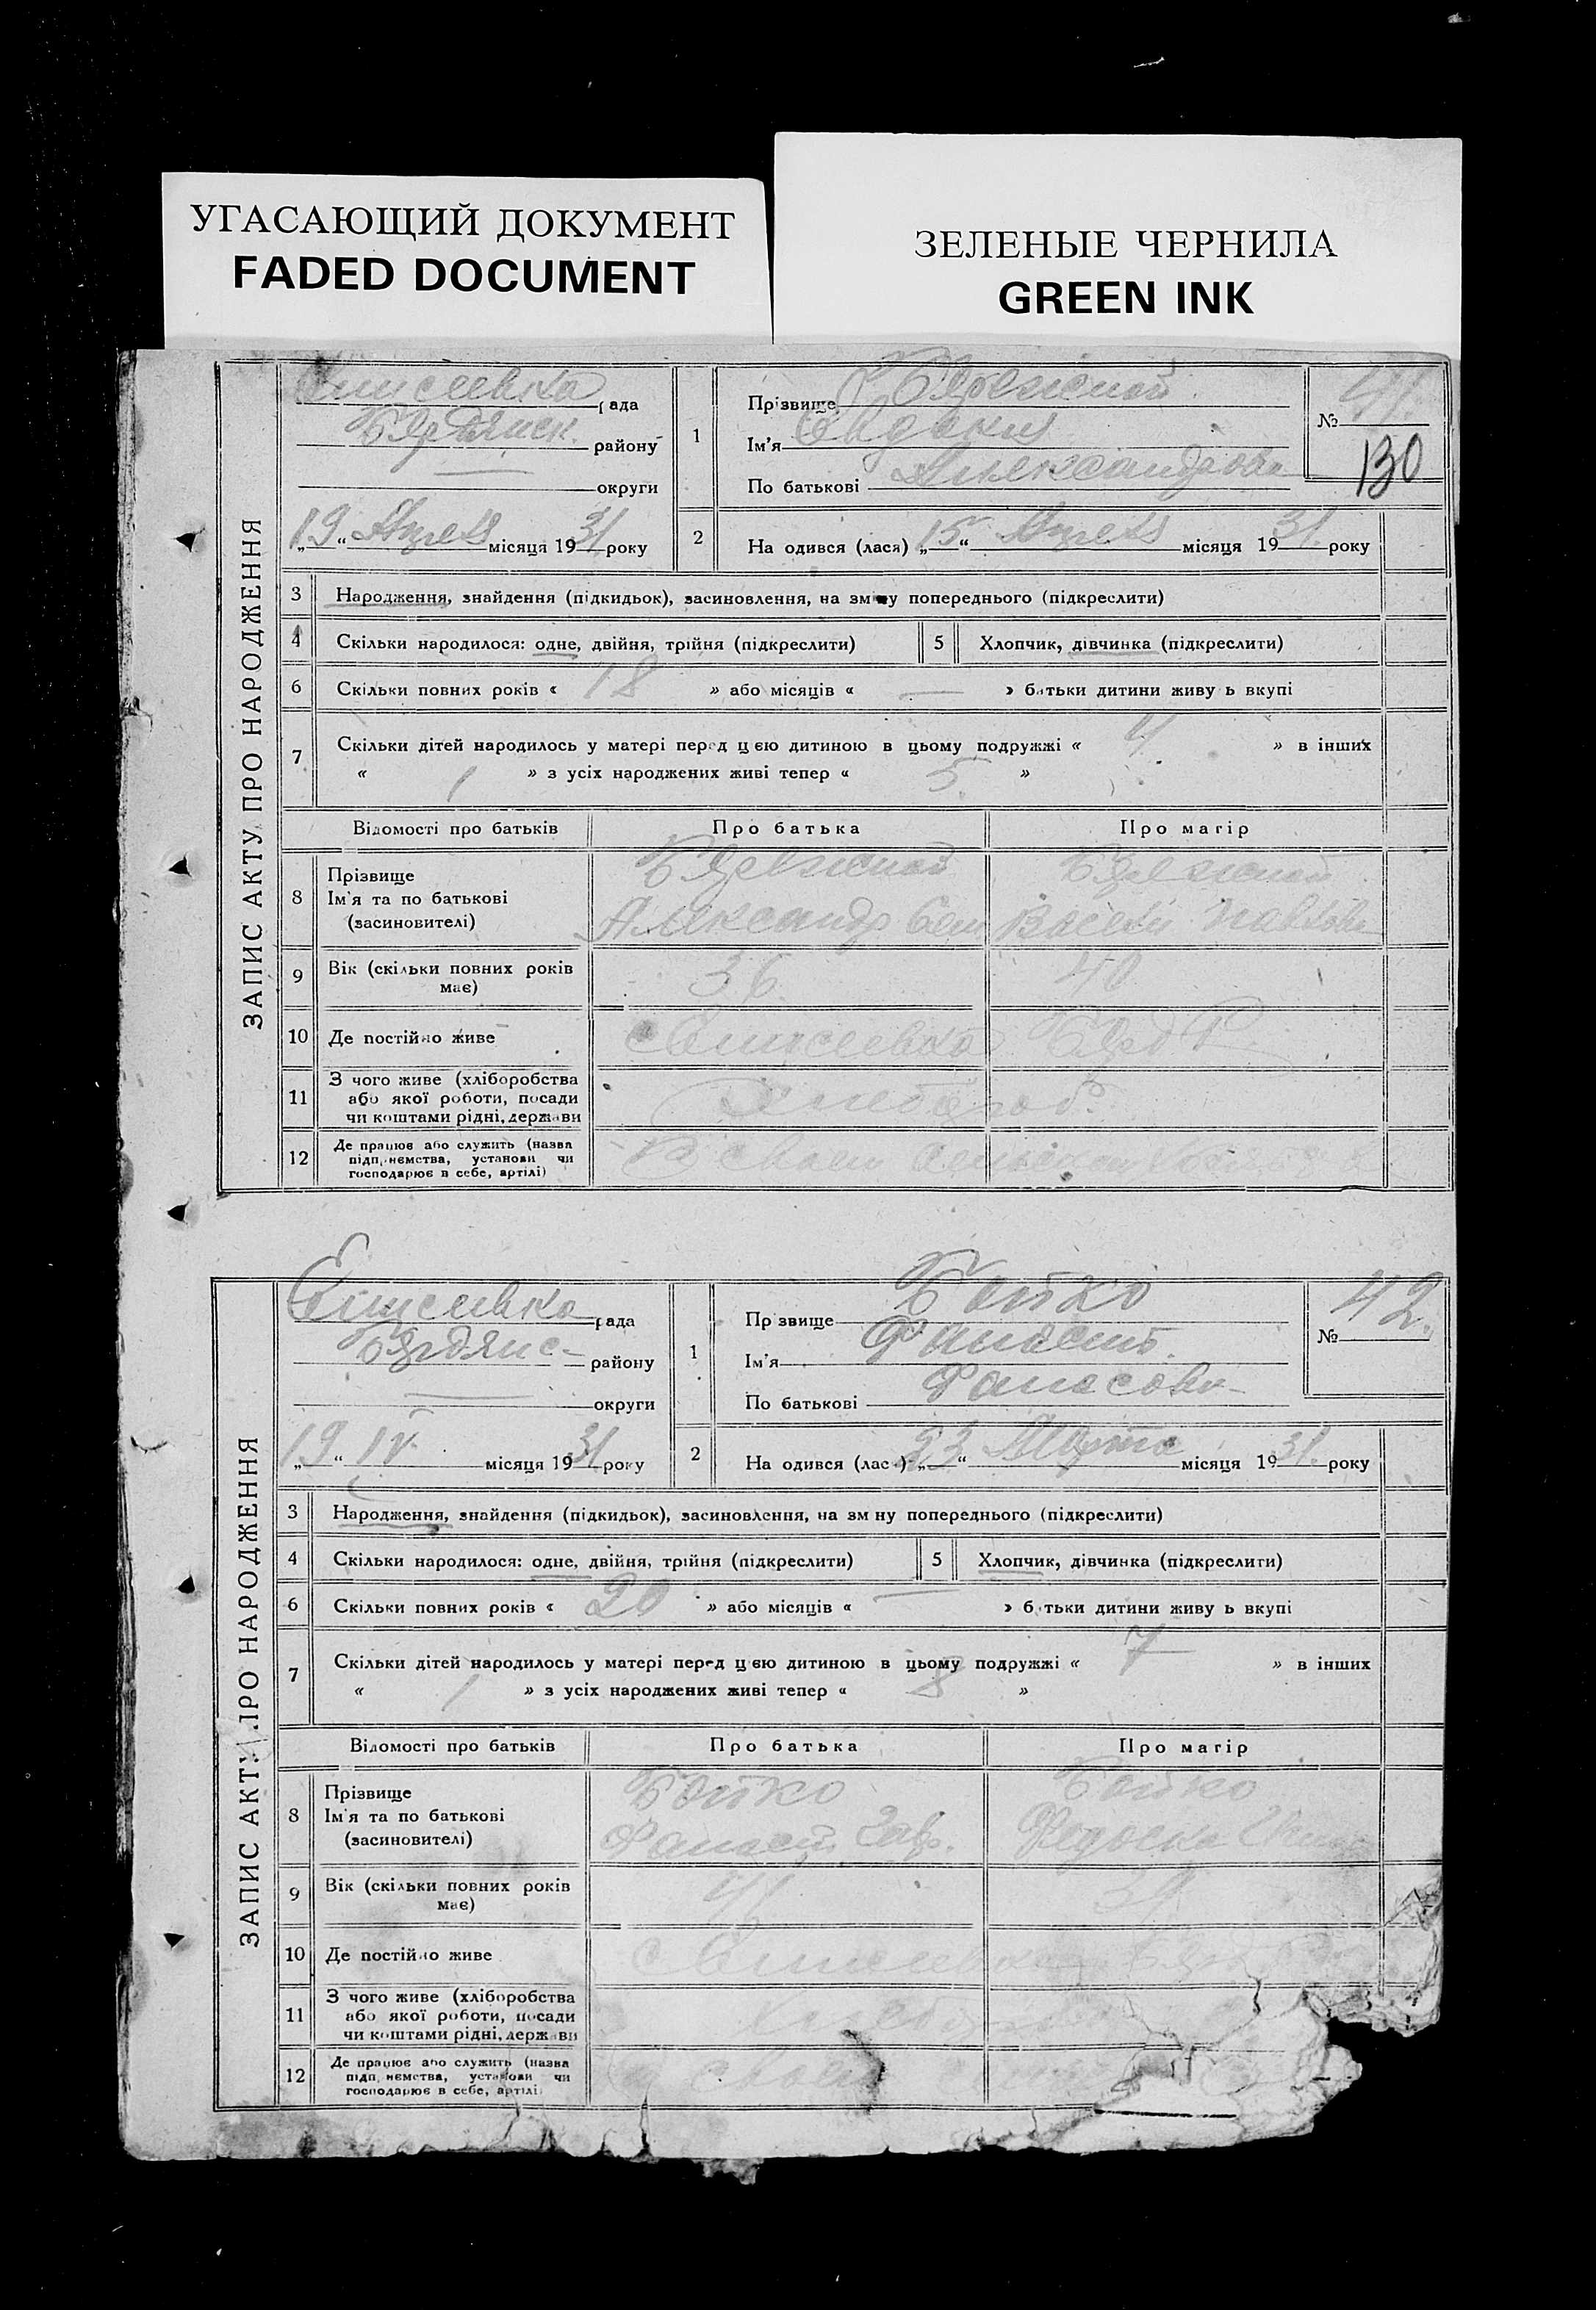 УГАСАЮЩИЙ ДОКУМЕНТ
FADED DOCUMENT
ЗЕЛЕНЫЕ ЧЕРНИЛА
GREEN INK
ЗАПИС АКТУ ПРО НАРОДЖЕННЯ
рада
Бярдянск. району
округи
„19“ Апреля місяця 1931 року
1
Прізвище Бярежной
Ім'я Евдокия
По батькові Александровна
№ 41.
130
2
На одився (лася) „15“ Апреля місяця 1931. року
3 Народження, знайдення (підкидьок), засиновлення, на зміну попереднього (підкреслити)
4 Скільки народилося: одне, двійня, трійня (підкреслити)
5 Хлопчик, дівчинка (підкреслити)
6 Скільки повних років « 18 » або місяців « — » батьки дитини живу ь вкупі
7 Скільки дітей народилось у матері перед цією дитиною в цьому подружжі « 4 » в інших
« 1 » з усіх народжених живі тепер « 5. »
Відомості про батьків Про батька Про матір
8 Прізвище
Ім'я та по батькові
(засиновителі)
Бярежной
Александр
Бярежной
9 Вік (скільки повних років
має)
36
40
10 Де постійно живе
11 З чого живе (хліборобства
або якої роботи, посади
чи коштами рідні, держави
12 Де працює або служить (назва
підприємства, установи чи
господарює в себе, артілі)
ЗАПИС АКТУ ПРО НАРОДЖЕННЯ
рада
Бярдянс- району
округи
„19“ IV. місяця 1931 року
1
Пр звище Бойко
Ім'я Фанасит.
По батькові Фанасови-
№ 42.
2
На одився (лас ) „23“ Марта місяця 1931. року
3 Народження, знайдення (підкидьок), засиновлення, на зм ну попереднього (підкреслити)
4 Скільки народилося: одне, двійня, трійня (підкреслити)
5 Хлопчик, дівчинка (підкреслити)
6 Скільки повних років « 20 » або місяців « — » б тьки дитини живу ь вкупі
7 Скільки дітей народилось у матері перед цією дитиною в цьому подружжі « 7 » в інших
« 1 » з усіх народжених живі тепер « 8 »
Відомості про батьків Про батька Про матір
8 Прізвище
Ім'я та по батькові
(засиновителі)
Бойко
Бойко
9 Вік (скільки повних років
має)
10 Де постійно живе
11 З чого живе (хліборобства
або якої роботи, посади
чи коштами рідні, держави
12 Де працює або служить (назва
підприємства, установи чи
господарює в себе, артілі